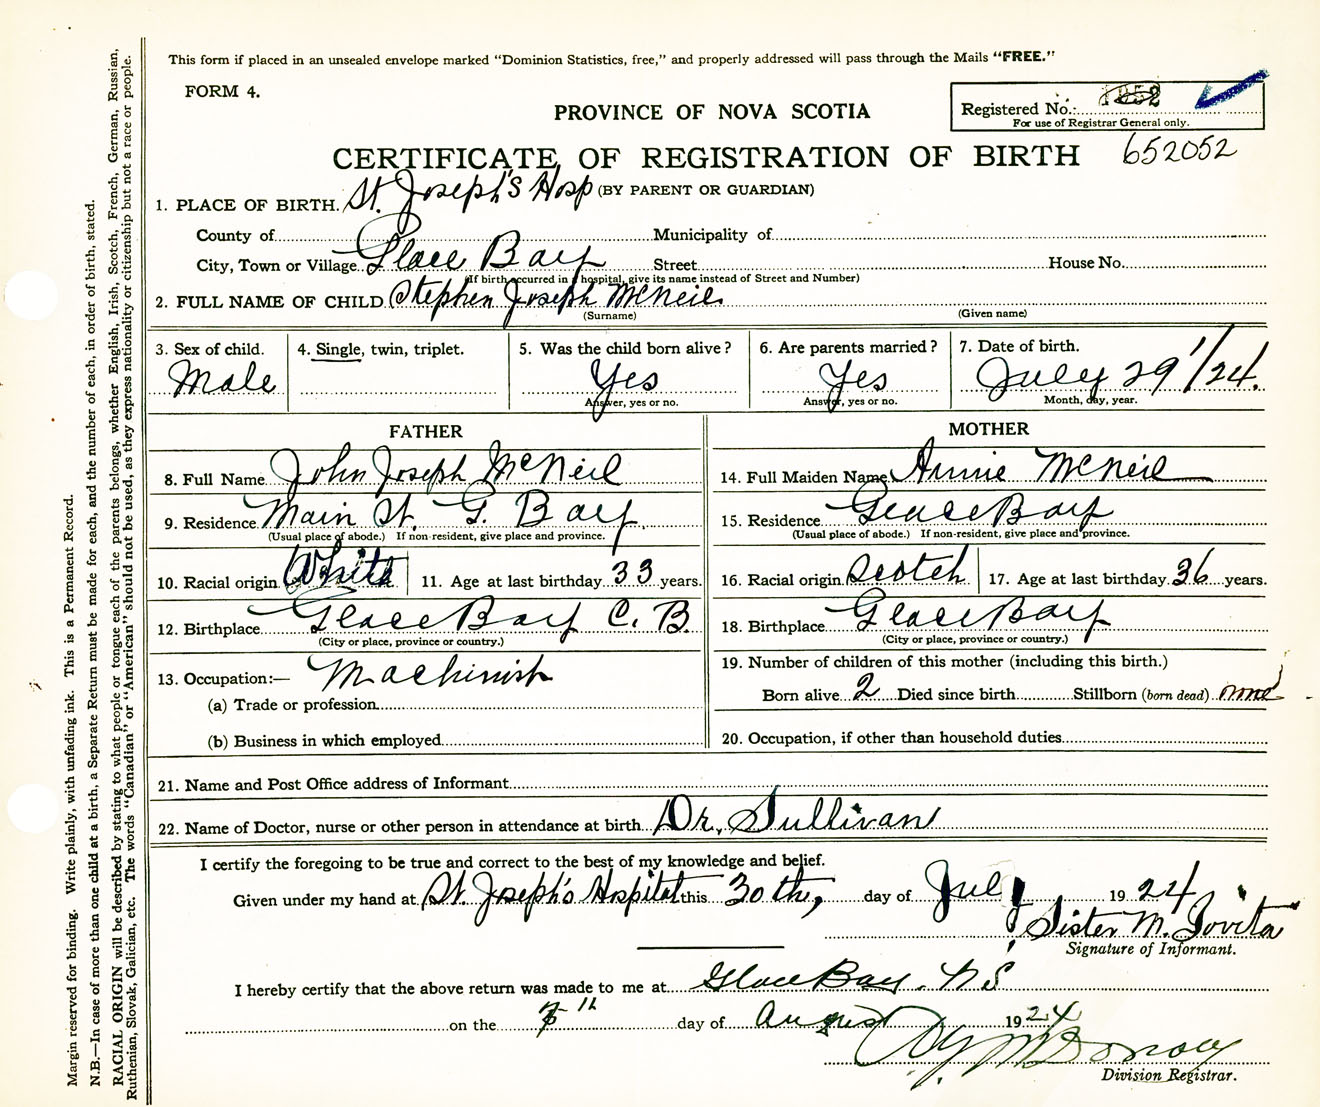 This form if placed in an unsealed envelope marked "Dominion Statistics, free," and properly addressed will pass through the Mails "FREE."
FORM 4.
PROVINCE OF NOVA SCOTIA
Registered No.: 1852
For use of Registrar General only.
CERTIFICATE OF REGISTRATION OF BIRTH 652052
(BY PARENT OR GUARDIAN)
1. PLACE OF BIRTH. St. Joseph's Hosp
County of Municipality of
City, Town or Village Glace Bay Street House No.
(If birth occurred in a hospital, give its name instead of Street and Number)
2. FULL NAME OF CHILD Stephen Joseph McNeil
(Surname) (Given name)
3. Sex of child. 4. Single, twin, triplet. 5. Was the child born alive? 6. Are parents married? 7. Date of birth.
Male Yes Yes July 29'/24.
Answer, yes or no. Answer, yes or no. Month, day, year.
FATHER MOTHER
8. Full Name John Joseph McNeil 14. Full Maiden Name Annie McNeil
9. Residence Main St. G. Bay. 15. Residence Glace Bay
(Usual place of abode.) If non-resident, give place and province. (Usual place of abode.) If non-resident, give place and province.
10. Racial origin White 11. Age at last birthday 33 years. 16. Racial origin Scotch 17. Age at last birthday 36 years.
12. Birthplace Glace Bay C. B. 18. Birthplace Glace Bay
(City or place, province or country.) (City or place, province or country.)
13. Occupation:— Machinist 19. Number of children of this mother (including this birth.)
(a) Trade or profession Born alive 2 Died since birth Stillborn (born dead) none
(b) Business in which employed 20. Occupation, if other than household duties
21. Name and Post Office address of Informant
22. Name of Doctor, nurse or other person in attendance at birth Dr. Sullivan
I certify the foregoing to be true and correct to the best of my knowledge and belief.
Given under my hand at St. Joseph's Hospital this 30th, day of July 1924
Sister M. Jovita
Signature of Informant.
I hereby certify that the above return was made to me at Glace Bay. N S
on the th day of August 1924
Division Registrar.
Margin reserved for binding. Write plainly, with unfading ink. This is a Permanent Record.
N.B.—In case of more than one child at a birth, a Separate Return must be made for each, and the number of each, in order of birth, stated.
RACIAL ORIGIN will be described by stating to what people or tongue each of the parents belongs, whether English, Irish, Scotch, French, German, Russian,
Ruthenian, Slovak, Galician, etc. The words "Canadian" or "American" should not be used, as they express nationality or citizenship but not a race or people.